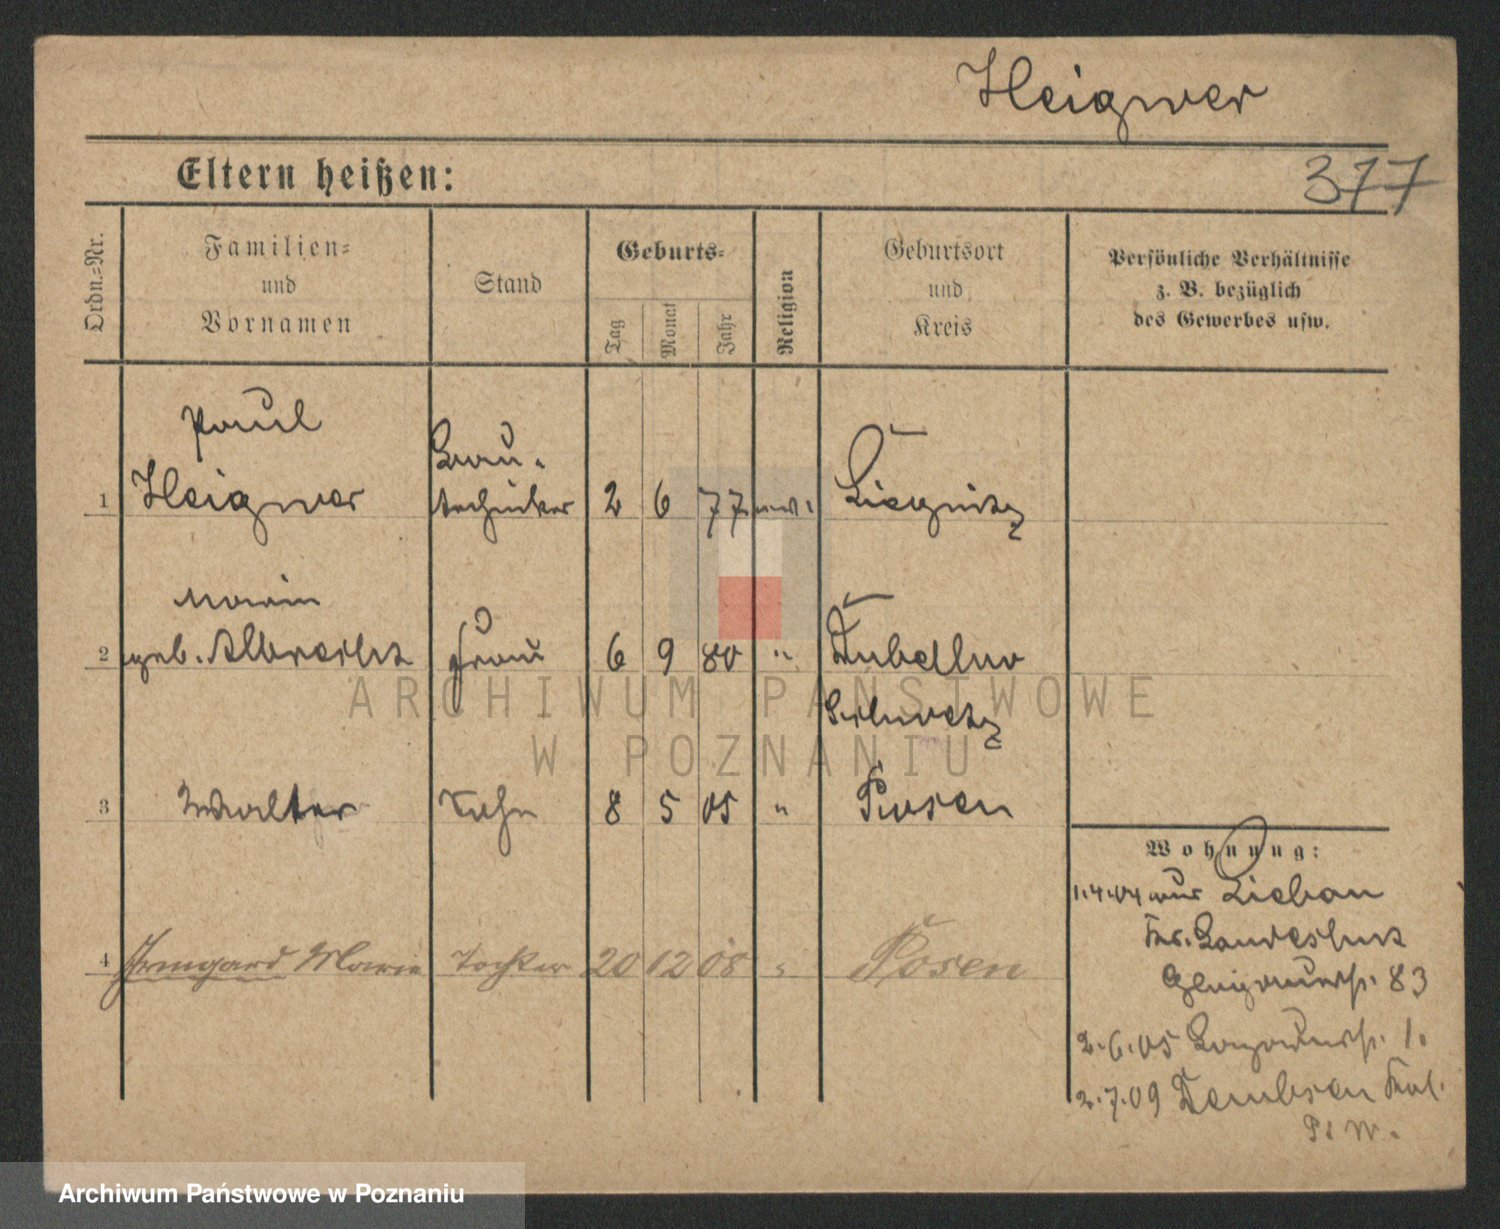 Heigwer
377
Eltern heißen:
Ordn.-Nr.
Familien-
und
Vornamen
Stand
Geburts-
Tag
Monat
Jahr
Religion
Geburtsort
und
Kreis
Persönliche Verhältnisse
z. B. bezüglich
des Gewerbes usw.
Paul
1 Heigwer
Bau-
techniker 2 6 77 Liegnitz
2 geb. Albrecht Frau 6 9 80 "
Schwetz
3 Walter Sohn 8 5 05 " Posen
4 Irmgard Marie Tochter 20 12 08 " Posen
Wohnung:
1.4.04 aus Liebau
Kr. Landeshut
83
2.6.05 1.
2.7.09 Dembsen
P. W.
ARCHIWUM PAŃSTWOWE
W POZNANIU
Archiwum Państwowe w Poznaniu